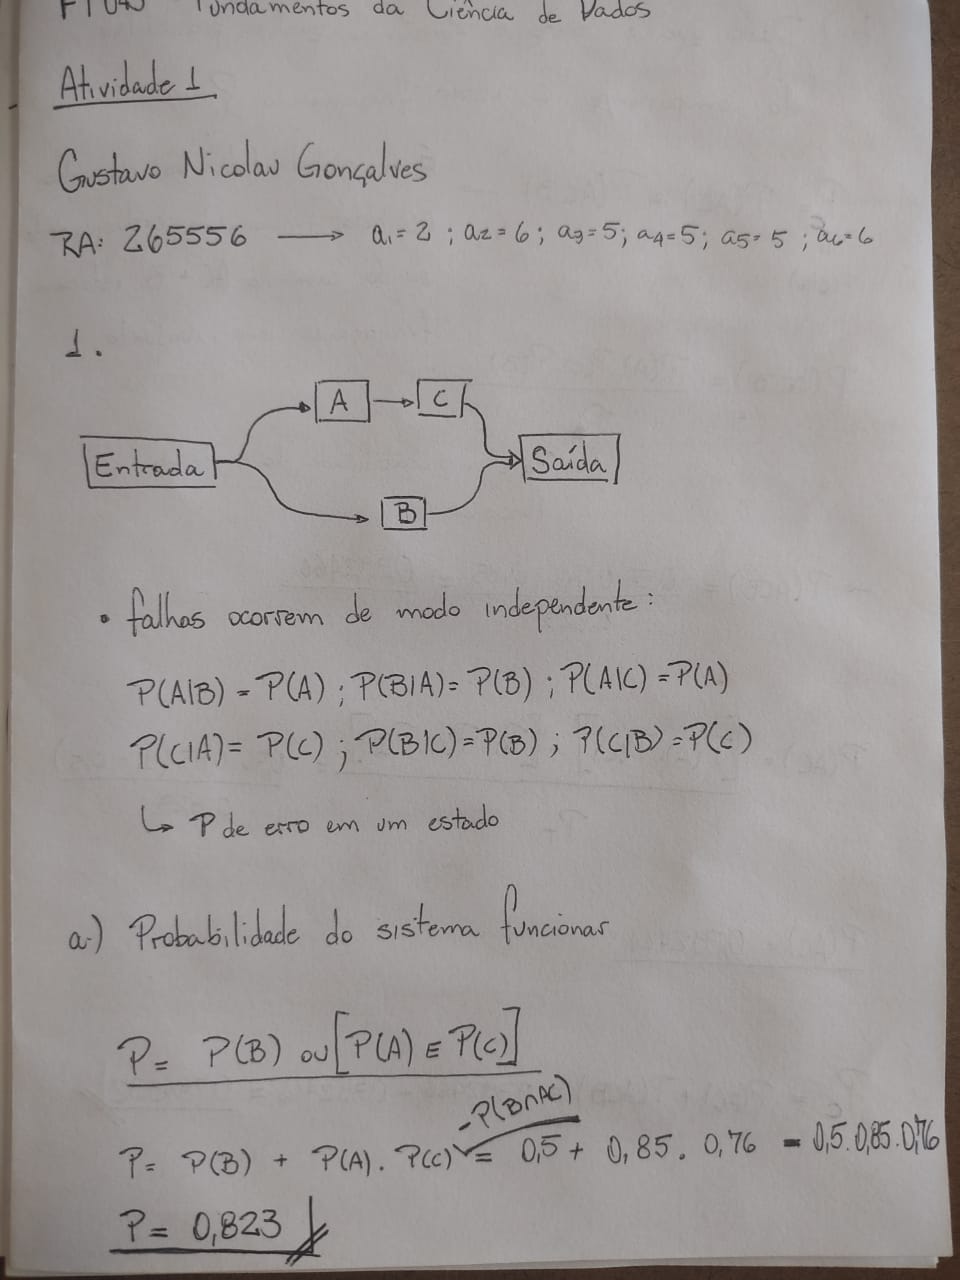 Fundamentos da Ciência de Dados
Atividade 1
Gustavo Nicolau Gonçalves
RA: 265556 → a₁=2 ; a₂=6 ; a₃=5; a₄=5; a₅=5 ; a₆=6
1.
A → C
Entrada
Saída
B
• falhas ocorrem de modo independente:
P(A|B) = P(A) ; P(B|A) = P(B) ; P(A|C) = P(A)
P(C|A) = P(C) ; P(B|C) = P(B) ; P(C|B) = P(C)
↳ P de erro em um estado
a.) Probabilidade do sistema funcionar
P = P(B) ou [P(A) E P(C)]
- P(B∩AC)
P = P(B) + P(A) . P(C) = 0,5 + 0,85 . 0,76 - 0,5.0,85.0,76
P = 0,823